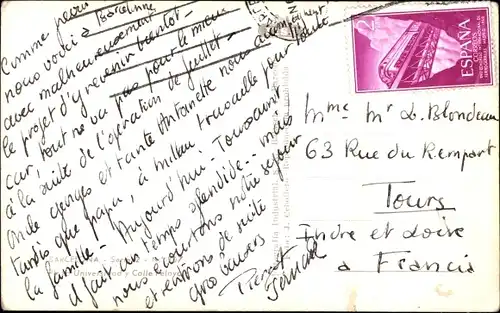 Comme prévu
nous voici à Barcelone
avec malheureusement
le projet d'y revenir bientôt -
car, tout ne va pas pour le mieux
à la suite de l'opération de Juillet -
Oncle Georges et tante Antoinette nous accompagnent
tandis que papa, à Millau travaille pour toute
la famille - Aujourd'hui - Toussaint
il fait un temps splendide -- mais
nous écourtons notre séjour
et rentrons de suite
gros baisers
Pierrot
2
CORREOS
ESPAÑA
Mme Mr L. Blondeau
63 Rue du Rempart
Tours
Indre et Loire
à Francia
BARCELONA
Universidad y Calle Pelayo